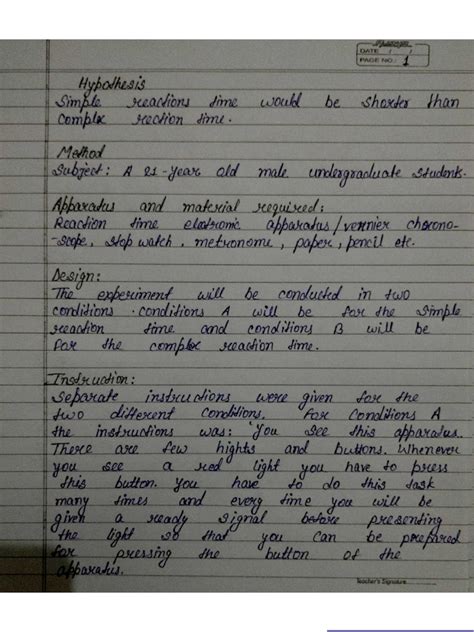 DATE / /
PAGE NO.: 1
Hypothesis
Simple reactions time would be shorter than
complex rection time.
Method
Subject: A 21-year old male undergraduate students.
Apparatus and material required:
Reaction time electronic apparatus/vernier chrono-
-scope, stop watch, metronome, paper, pencil etc.
Design:
The experiment will be conducted in two
conditions. conditions A will be for the simple
reaction time and conditions B will be
for the complex reaction time.
Instruction:
Separate instructions were given for the
two different conditions. For conditions A
the instructions was: 'You see this apparatus.
There are few hights and buttons. Whenever
you see a red light you have to press
this button. you have to do this task
many times and every time you will be
given a ready signal before presenting
the light so that you can be prepared
for pressing the button of the
apparatus.
Teacher's Signature